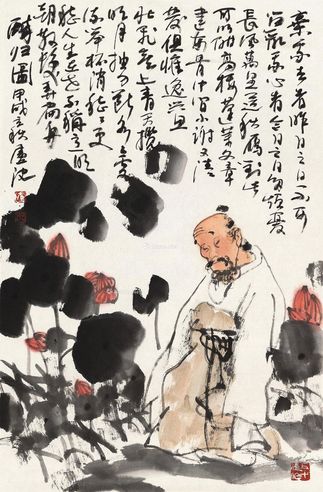 棄我去者昨日之日不可
留亂我心者今日之日多煩憂
長風萬里送秋雁對此
可以酣高樓蓬萊文章
建安骨中间小谢又清
發俱懷逸興
思飛上青天攬
明月抽刀斷水水更
流举杯消愁愁更
愁人生在世不稱意明
朝散髮弄扁舟
醉归圖甲戌秋